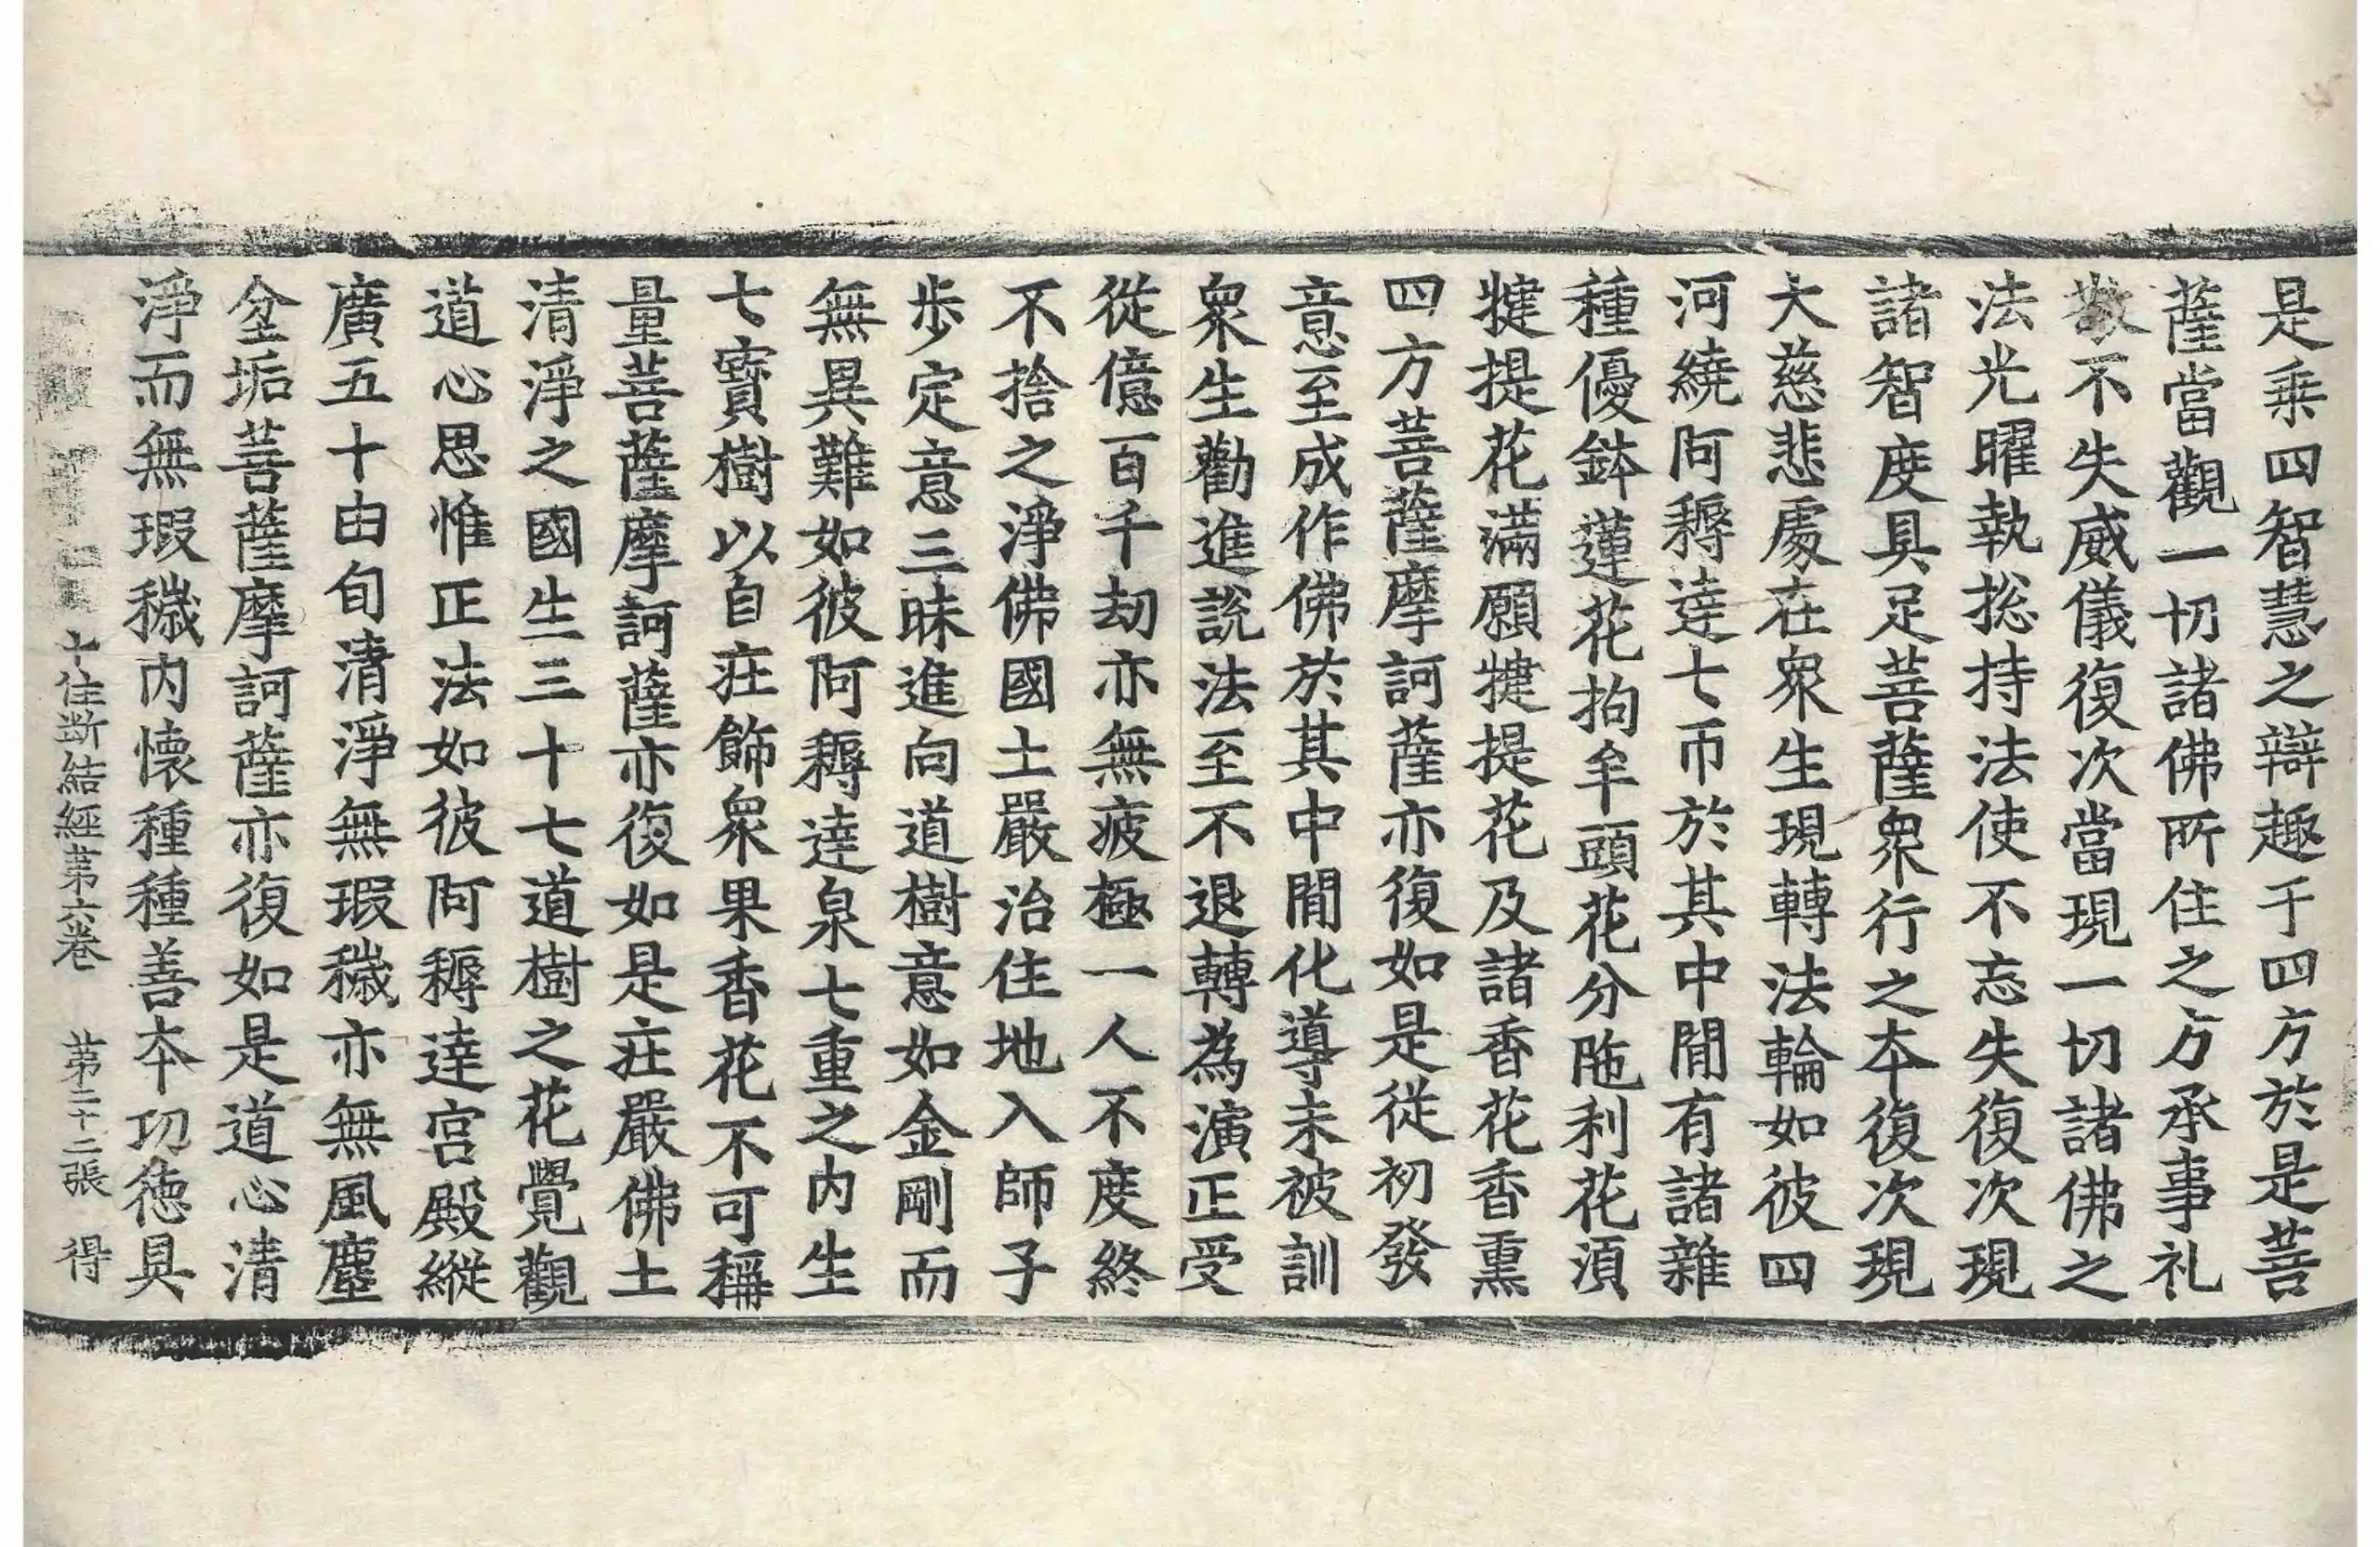 是乘四智慧之辯趣于四方於是菩
薩當觀一切諸佛所住之方承事礼
敬不失威儀復次當現一切諸佛之
法光曜執捴持法使不忘失復次現
諸智度具足菩薩衆行之夲復次現
大慈悲處在衆生現轉法輪如彼四
河繞阿耨達七帀於其中間有諸雜
種優鉢蓮花拘牟頭花分陁利花湏
揵提花滿願揵提花及諸香花香熏
四方菩薩摩訶薩亦復如是從初發
意至成作佛於其中間化導未被訓
衆生勸進說法至不退轉為演正受
從億百千劫亦無疲極一人不度終
不捨之淨佛國土嚴治住地入師子
歩定意三昧進向道樹意如金剛而
無異難如彼阿耨達泉七重之内生
七寳樹以自莊飾衆果香花不可稱
量菩薩摩訶薩亦復如是莊嚴佛土
清淨之國生三十七道樹之花覺觀
道心思惟正法如彼阿耨達宫殿縱
廣五十由旬清淨無瑕穢亦無風塵
坌垢菩薩摩訶薩亦復如是道心清
淨而無瑕穢内懐種種善夲功徳具
十住断結經苐六卷 苐二十二張 得